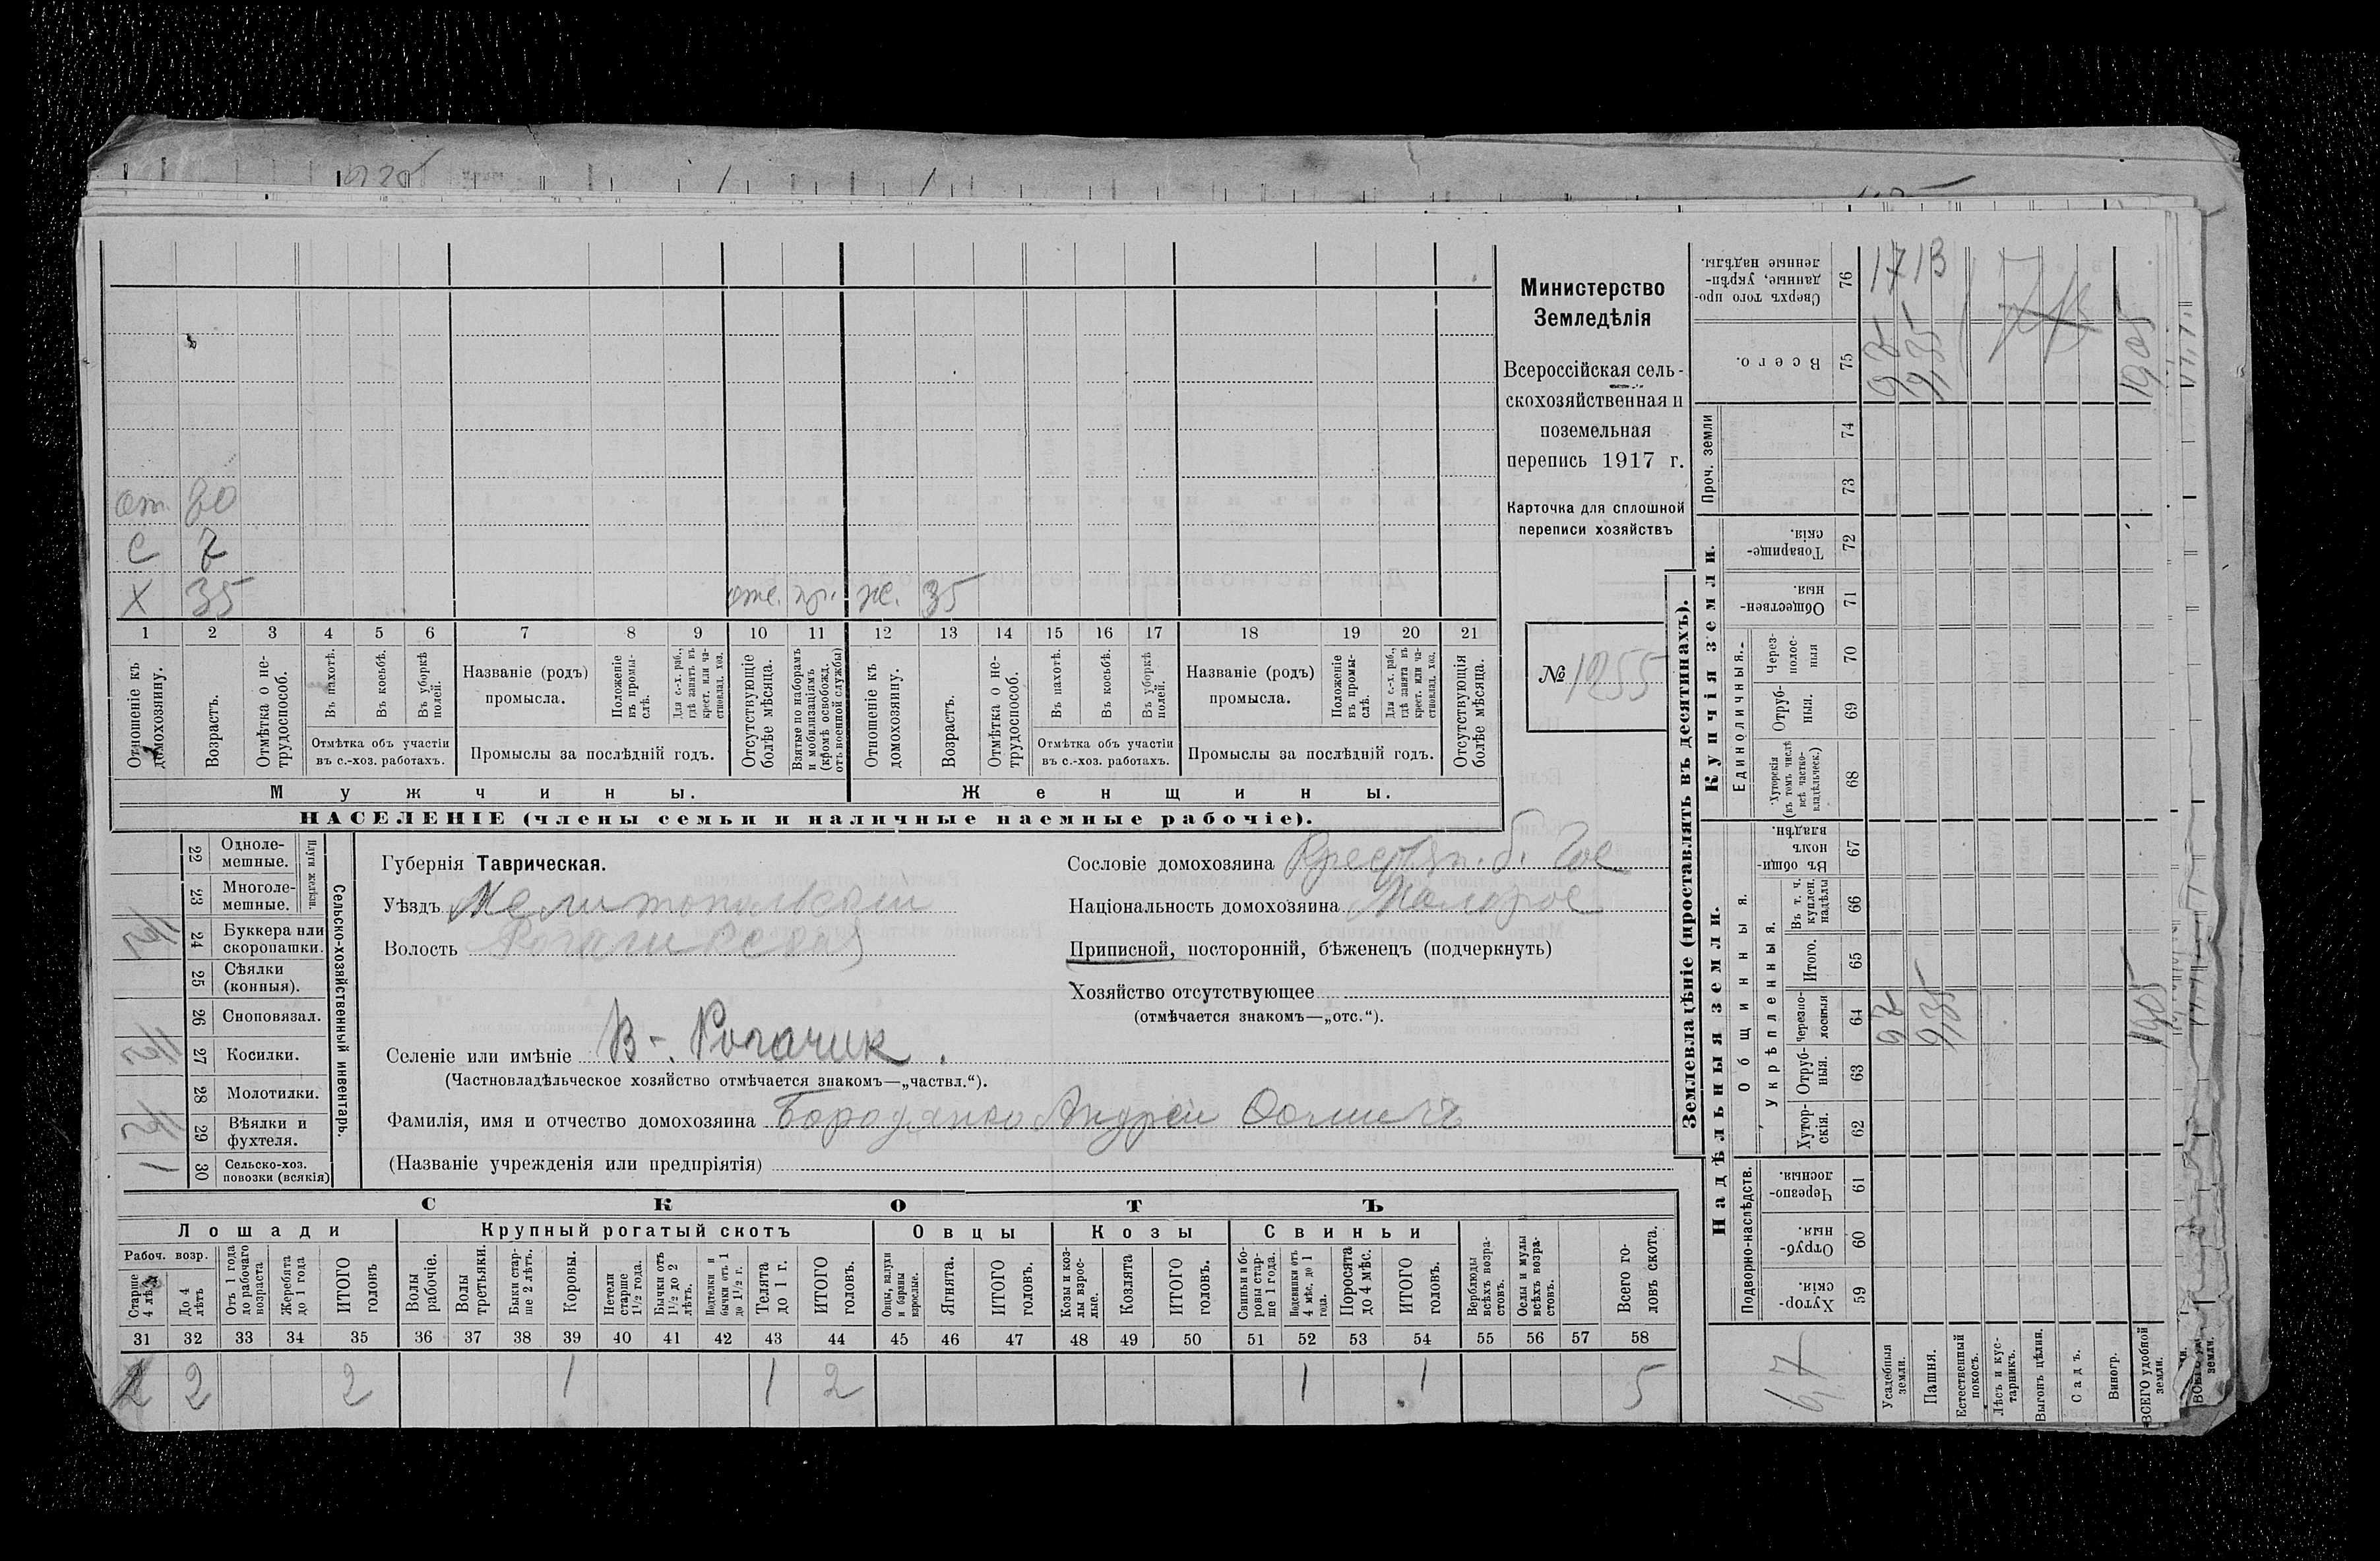 Министерство
Земледѣлія
Всероссійская сель-
скохозяйственная и
поземельная
перепись 1917 г.
Карточка для сплошной
переписи хозяйствъ
№ 1255
от. 80
С 7
Х 35 отс. пр. ж. 35
1 2 3 4 5 6 7 8 9 10 11 12 13 14 15 16 17 18 19 20 21
Отношеніе къ домохозяину.
Возрастъ.
Отмѣтка о не-трудоспособ.
Въ пахотѣ.
Въ косьбѣ.
Въ уборкѣ полей.
Отмѣтка объ участіи
въ с.-хоз. работахъ.
Названіе (родъ)
промысла.
Положеніе въ промы-слѣ.
Для с.-х. раб., гдѣ занятъ въ крест. или ча-стновлад. хоз.
Промыслы за послѣдній годъ.
Отсутствующіе болѣе мѣсяца.
Взятые по наборамъ и мобилизаціямъ (кромѣ освобожд. отъ военной службы)
Отношеніе къ домохозяину.
Возрастъ.
Отмѣтка о не-трудоспособ.
Въ пахотѣ.
Въ косьбѣ.
Въ уборкѣ полей.
Отмѣтка объ участіи
въ с.-хоз. работахъ.
Названіе (родъ)
промысла.
Положеніе въ промы-слѣ.
Для с.-х. раб., гдѣ занята въ крест. или ча-стновлад. хоз.
Промыслы за послѣдній годъ.
Отсутствующія болѣе мѣсяца.
Мужчины. Женщины.
НАСЕЛЕНІЕ (члены семьи и наличные наемные рабочіе).
Сельско-хозяйственный инвентарь.
Плуги желѣзн.
22 Одноле-мешные.
23 Многоле-мешные.
1/2 24 Буккера или скоропашки.
25 Сѣялки (конныя).
26 Сноповязал.
1/2 27 Косилки.
28 Молотилки.
1/2 29 Вѣялки и фухтеля.
1 30 Сельско-хоз. повозки (всякія)
Губернія Таврическая.
Уѣздъ Мелитопольскій
Волость Рогачикская
Сословіе домохозяина
Національность домохозяина Малорос
Приписной, посторонній, бѣженецъ (подчеркнуть)
Хозяйство отсутствующее
(отмѣчается знакомъ—„отс.“).
Селеніе или имѣніе В-. Рогачик.
(Частновладѣльческое хозяйство отмѣчается знакомъ—„частвл.“).
Фамилія, имя и отчество домохозяина Бородянко Андрей
(Названіе учрежденія или предпріятія)
СКОТЪ
Лошади Крупный рогатый скотъ Овцы Козы Свиньи
Рабоч. возр.
Старше 4 лѣтъ
До 4 лѣтъ
Отъ 1 года до рабочаго возраста
Жеребята до 1 года
ИТОГО головъ
Волы рабочіе.
Волы третьяки.
Быки стар-ше 2 лѣтъ.
Коровы.
Нетели старше 1½ года.
Бычки отъ 1½ до 2 лѣтъ.
Подтелки и бычки отъ 1 до 1½ г.
Телята до 1 г.
ИТОГО головъ.
Овцы, валухи и бараны взрослые.
Ягнята.
ИТОГО головъ.
Козы и коз-лы взрос-лые.
Козлята
ИТОГО головъ.
Свиньи и бо-ровы стар-ше 1 года.
Подсвинки отъ 4 мѣс. до 1 года.
Поросята до 4 мѣс.
ИТОГО головъ.
Верблюды всѣхъ возра-стовъ.
Ослы и мулы всѣхъ возра-стовъ.
Всего го-ловъ скота.
31 32 33 34 35 36 37 38 39 40 41 42 43 44 45 46 47 48 49 50 51 52 53 54 55 56 57 58
2 2 1 1 2 1 1 5
Землевладѣніе (проставлять въ десятинахъ).
Надѣльныя земли. Купчія земли. Проч. земли
Подворно-наслѣдств.
Общинныя.
Укрѣпленныя.
Единоличныя.
Хутор-скія. 59
Отруб-ныя. 60
Черезпо-лосныя. 61
Хутор-скія. 62
Отруб-ныя. 63
Черезпо-лосныя 64
Итого. 65
Въ т. ч. куплен. надѣлы 66
Въ общин-номъ владѣн. 67
Хуторскія (въ томъ числѣ всѣ частно-владѣльческ.) 68
Отруб-ныя. 69
Через-полос-ныя 70
Обществен-ныя. 71
Товарище-скія. 72
73
74
Всего. 75
Сверхъ того про-данные, укрѣп-ленные надѣлы. 76
Усадебныя земли.
Пашня.
Естественный покосъ.
Лѣсъ и кус-тарникъ.
Выгонъ цѣлин.
Садъ.
Виногр.
ВСЕГО удобной земли.